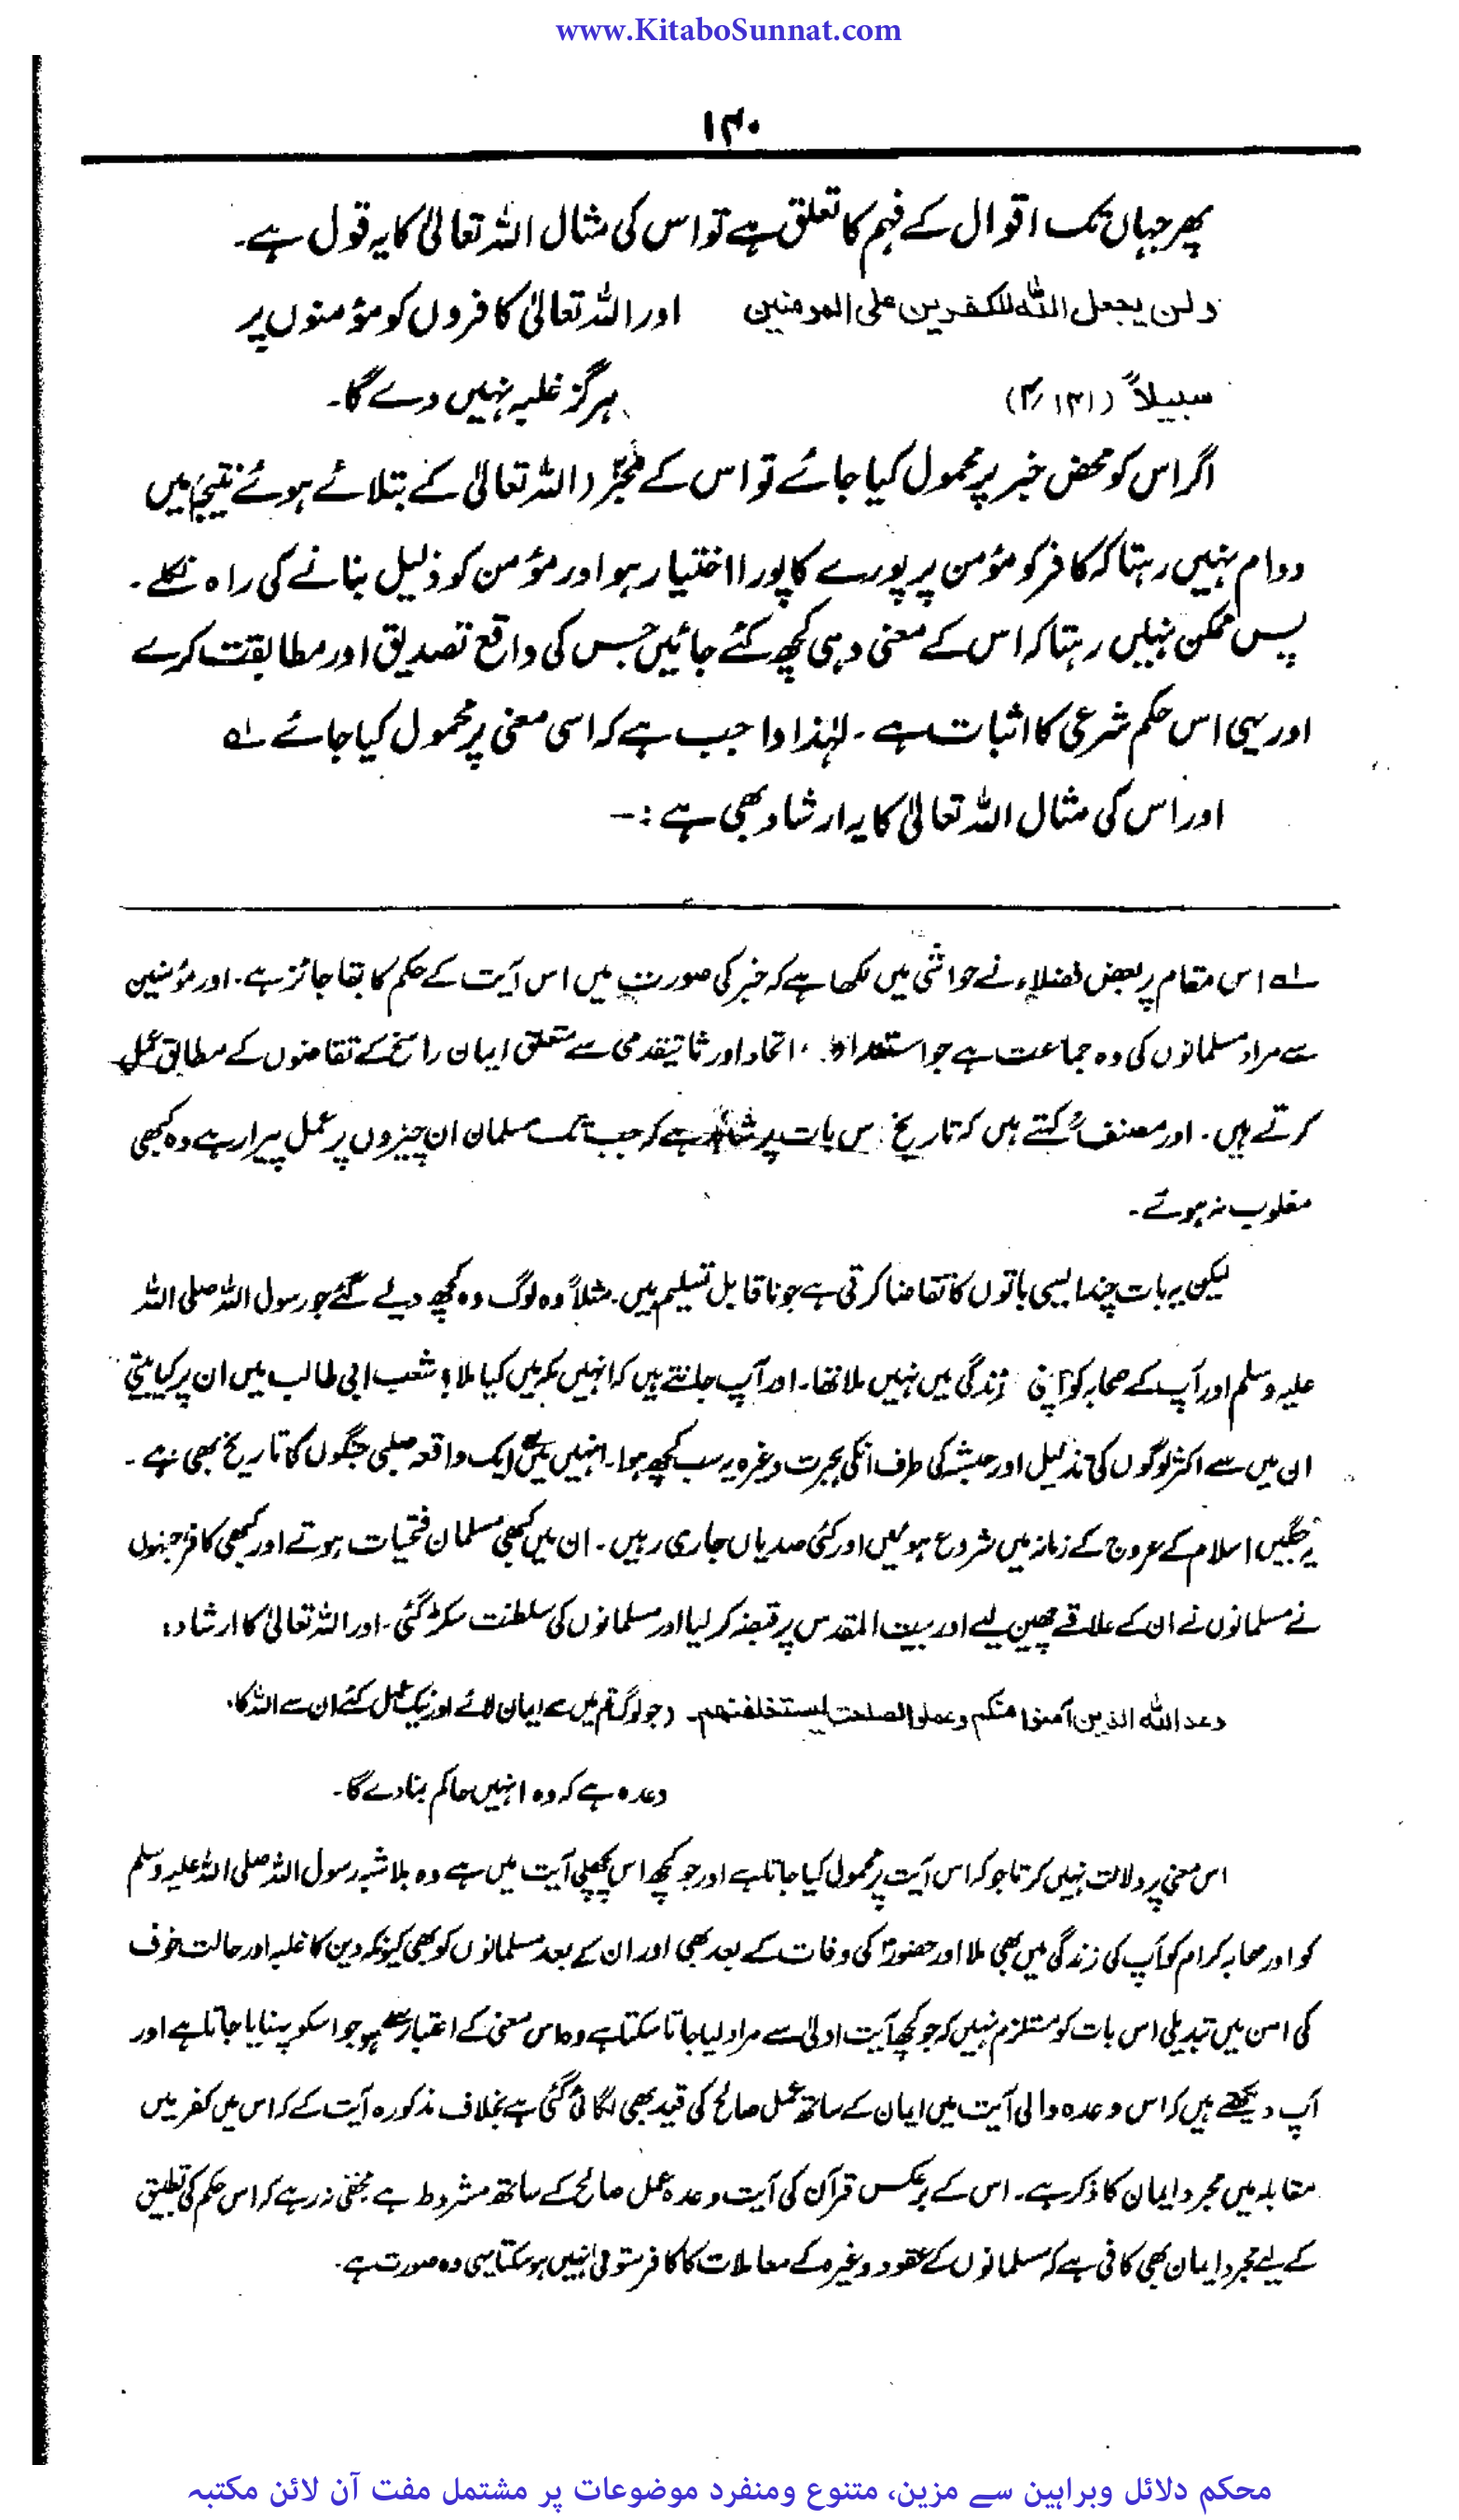 www.KitaboSunnat.com
۱۴۰
پھر جہاں تک اقوال کے فہم کا تعلق ہے تو اس کی مثال اللہ تعالیٰ کا یہ قول ہے۔
ولن یجعل اللہ للکفرین علی المومنین اور اللہ تعالیٰ کافروں کو مؤمنوں پر
سبیلاً (۱۴۱/۴) ہرگز غلبہ نہیں دے گا۔
اگر اس کو محض خبر پر محمول کیا جائے تو اس کے مُخبَر (اللہ تعالیٰ کے بتلائے ہوئے نتیجہ) میں
دوام نہیں رہتا کہ کافر کو مؤمن پر پورے کا پورا اختیار ہو اور مؤمن کو ذلیل بنانے کی راہ نکلے۔
پس ممکن نہیں رہتا کہ اس کے معنی وہی کچھ کئے جائیں جس کی واقع تصدیق اور مطابقت کرے
اور یہی اس حکم شرعی کا اثبات ہے۔ لہٰذا واجب ہے کہ اسی معنی پر محمول کیا جائے ؎۱
اور اس کی مثال اللہ تعالیٰ کا یہ ارشاد بھی ہے :۔
؎۱ اس مقام پر بعض فضلاء نے حواشی میں لکھا ہے کہ خبر کی صورت میں اس آیت کے حکم کا بقا جائز ہے۔ اور مؤمنین
سے مراد مسلمانوں کی وہ جماعت ہے جو استعداد، اتحاد اور ثابتقدمی سے متعلق ایمان راسخ کے تقاضوں کے مطابق عمل
کرتے ہیں۔ اور مصنفؒ کہتے ہیں کہ تاریخ اس بات پر شاہد ہے کہ جب تک مسلمان ان چیزوں پر عمل پیرا رہے وہ کبھی
مغلوب نہ ہوئے۔
لیکن یہ بات چند ایسی باتوں کا تقاضا کرتی ہے جو ناقابل تسلیم ہیں۔ مثلاً وہ لوگ وہ کچھ دیے گئے جو رسول اللہ صلی اللہ
علیہ وسلم اور آپ کے صحابہ کو اپنی زندگی میں نہیں ملا تھا۔ اور آپ جانتے ہیں کہ انہیں مکہ میں کیا ملا؟ شعب ابی طالب میں ان پر کیا بیتی
ان میں سے اکثر لوگوں کی تذلیل اور حبشہ کی طرف انکی ہجرت وغیرہ یہ سب کچھ ہوا۔ انہیں میں سے ایک واقعہ صلیبی جنگوں کا تاریخ بھی ہے۔
یہ جنگیں اسلام کے عروج کے زمانہ میں شروع ہوئیں اور کئی صدیاں جاری رہیں۔ ان میں کبھی مسلمان فتحیاب ہوتے اور کبھی کافر جنہوں
نے مسلمانوں نے ان کے علاقے چھین لیے اور بیت المقدس پر قبضہ کر لیا اور مسلمانوں کی سلطنت سکڑ گئی۔ اور اللہ تعالیٰ کا ارشاد:
وعد اللہ الذین آمنوا منکم وعملوا الصلحت لیستخلفنھم۔ (جو لوگ تم میں سے ایمان لائے اور نیک عمل کئے ان سے اللہ کا
وعدہ ہے کہ وہ انہیں حاکم بنا دے گا۔
اس معنی پر دلالت نہیں کرتا جو کہ اس آیت پر محمول کیا جاتا ہے اور جو کچھ اس پچھلی آیت میں ہے وہ بلا شبہ رسول اللہ صلی اللہ علیہ وسلم
کو اور صحابہ کرام کو آپ کی زندگی میں بھی ملا اور حضورؐ کی وفات کے بعد بھی اور ان کے بعد مسلمانوں کو بھی کیونکہ دین کا غلبہ اور حالت خوف
کی امن میں تبدیلی اس بات کو مستلزم نہیں کہ جو کچھ آیت اولیٰ سے مراد لیا جا تا سکتا ہے وہ اس معنی کے اعتبار سے ہو جو اسکو پہنایا جاتا ہے اور
آپ دیکھتے ہیں کہ اس وعدہ والی آیت میں ایمان کے ساتھ عمل صالح کی قید بھی لگائی گئی ہے بخلاف مذکورہ آیت کے کہ اس میں کفر میں
مقابلہ میں مجرد ایمان کا ذکر ہے۔ اس کے برعکس قرآن کی آیت وعدہ عمل صالح کے ساتھ مشروط ہے مخفی نہ رہے کہ اس حکم کی تطبیق
کے لیے مجرد ایمان بھی کافی ہے کہ مسلمانوں کے عقود وغیرہ کے معاملات کا کافر متولی نہیں ہو سکتا یہی وہ صورت ہے۔
محکم دلائل وبراہین سے مزین، متنوع ومنفرد موضوعات پر مشتمل مفت آن لائن مکتبہ